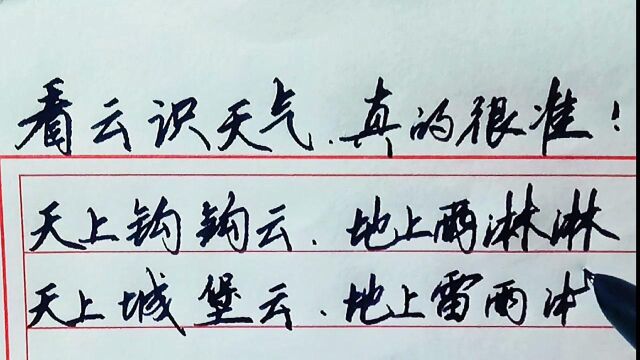 看云识天气.真的很准!
天上钩钩云.地上雨淋淋
天上城堡云.地上雷雨